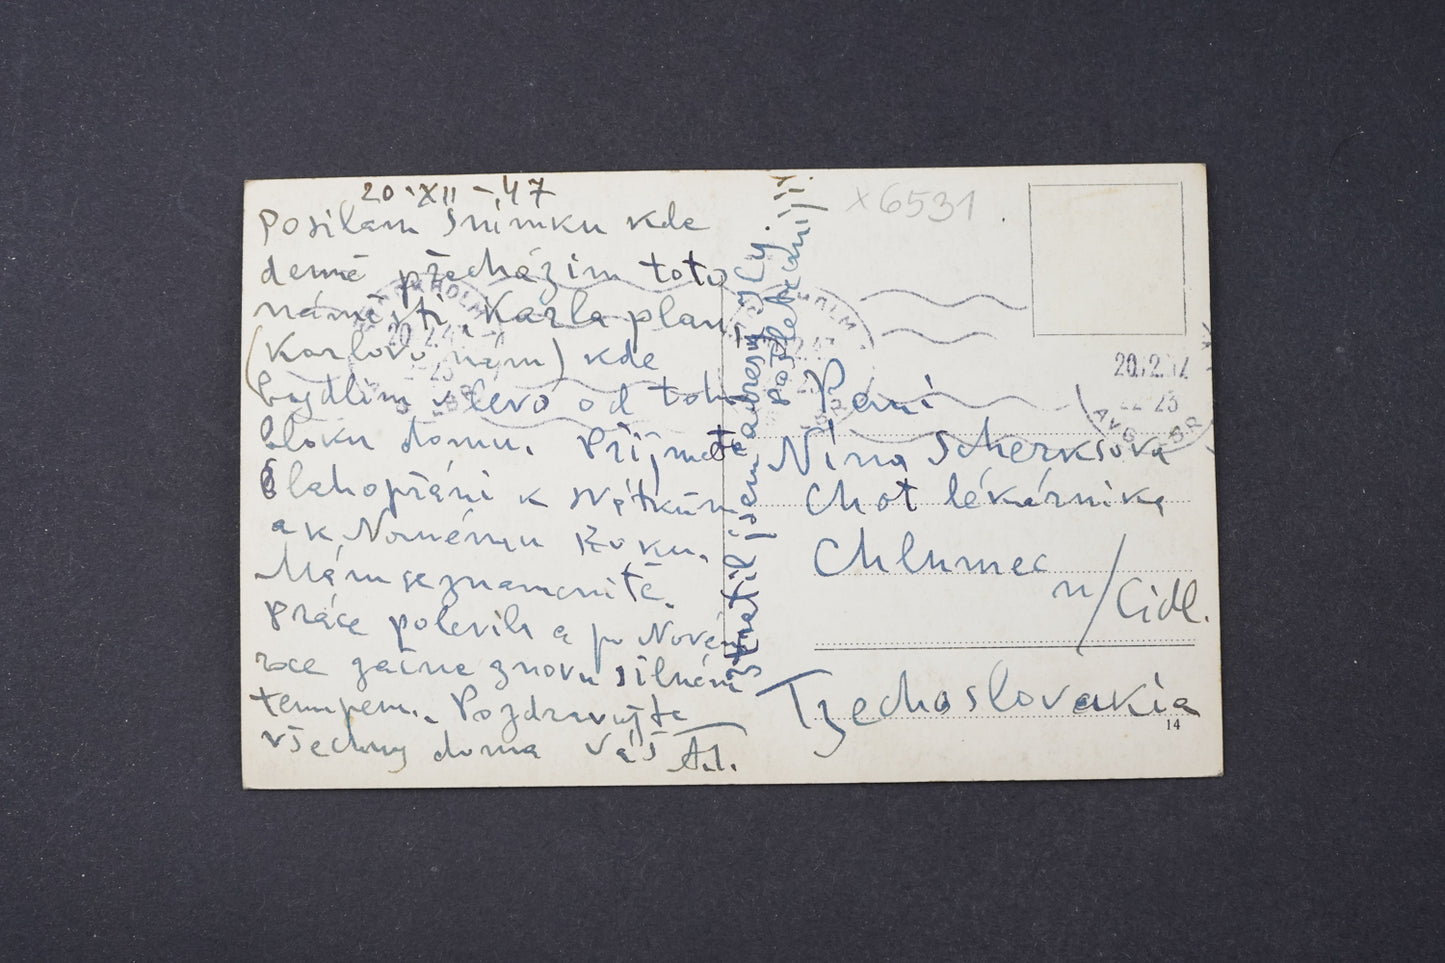 20.XII-47
Posílám Snímku kde
denně přecházím toto
náměstí, Karlaplan,
(Karlovo nám) kde
bydlím vlevo od toho
bloku domu. Přijmete
blahopřání k svátkům
a k Novému Roku.
Mám se znamenitě.
práce polevila a po Novém
roce začne znovu silným
tempem. Pozdravujte
všechny doma Váš
ztratil jsem adresy Vy.
pošlete mi ji!
x6531
Paní
Nína Scherksová
Choť lékárníka
Chlumec
n/Cidl.
Tzechoslovakia
14
20.12.47
22-23
AVG LBR